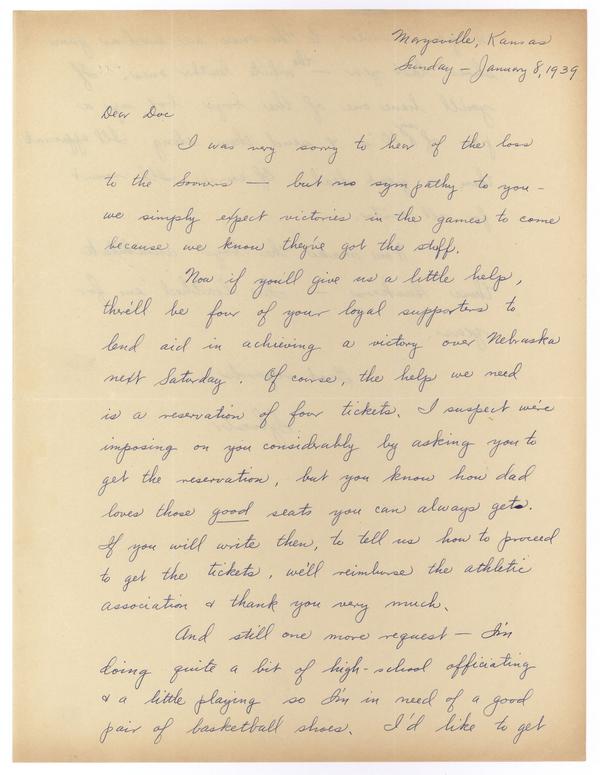 Marysville, Kansas
Sunday - January 8, 1939
Dear Doc
I was very sorry to hear of the loss
to the Sooners — but no sympathy to you -
we simply expect victories in the games to come
because we know they've got the stuff.
Now if you'll give us a little help,
there'll be four of your loyal supporters to
lend aid in achieving a victory over Nebraska
next Saturday. Of course, the help we need
is a reservation of four tickets. I suspect we're
imposing on you considerably by asking you to
get the reservation, but you know how dad
loves those good seats you can always get.
If you will write then, to tell us how to proceed
to get the tickets, we'll reimburse the athletic
association & thank you very much.
And still one more request — I'm
doing quite a bit of high-school officiating
& a little playing so I'm in need of a good
pair of basketball shoes. I'd like to get